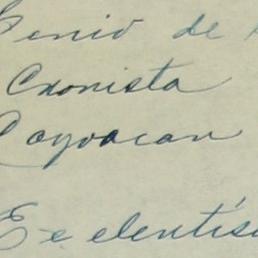 Genio de
Cronista
Coyoacan
Ecelentís